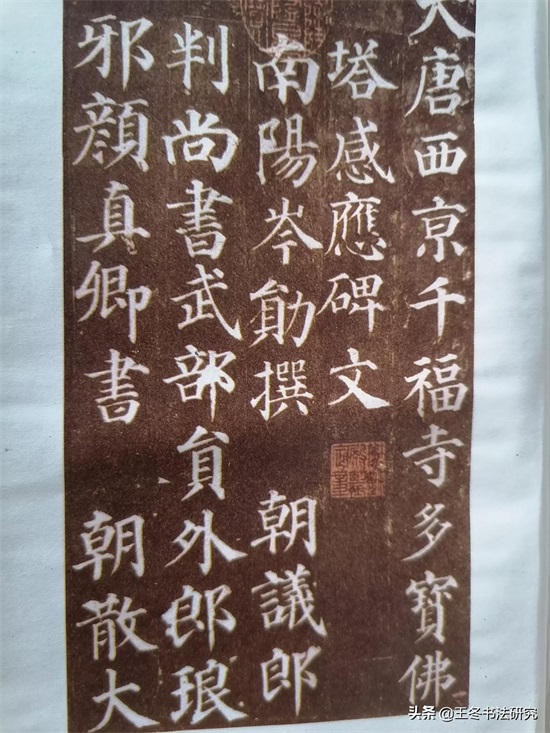 大唐西京千福寺多寶佛
塔感應碑文
南陽岑勛撰 朝議郎
判尚書武部員外郎琅
邪顏真卿書 朝散大
头条 @王冬书法研究